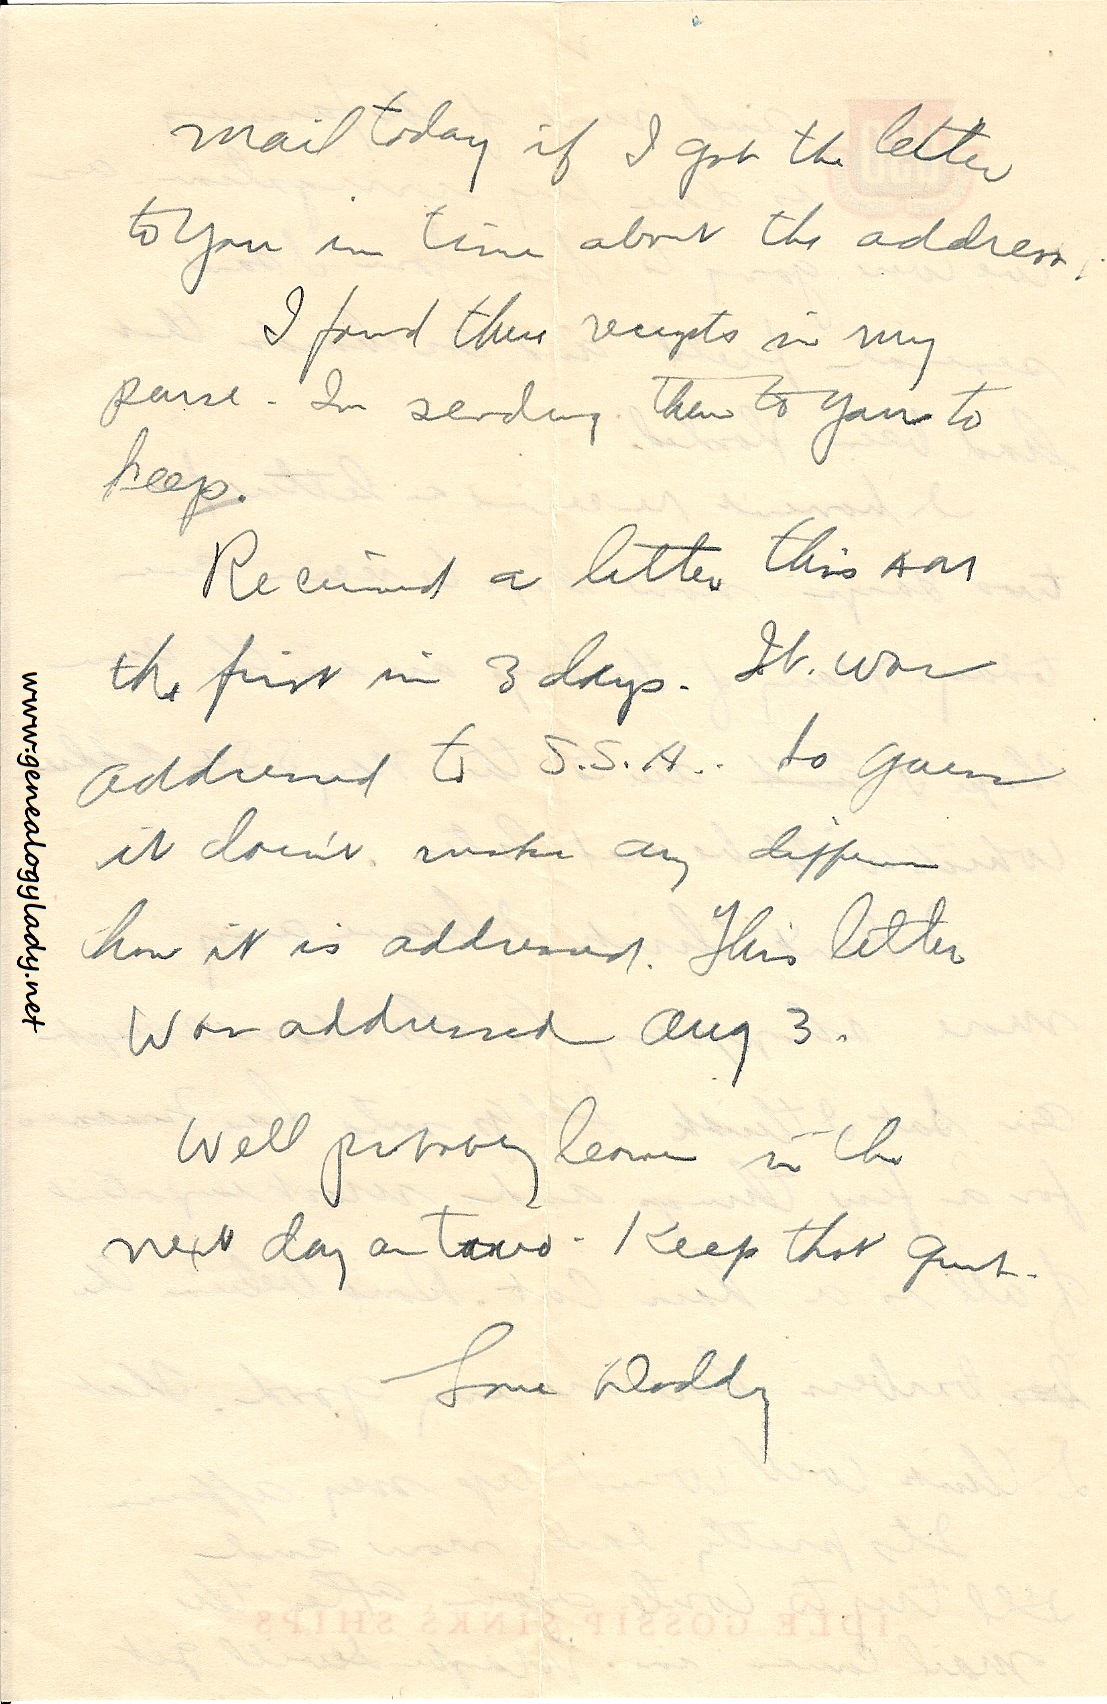 mail today if I got the letter
to you in time about the address.
I found these receipts in my
purse - Im sending them to you to
keep.
Received a letter this AM
the first in 3 days. It was
addressed to S.S.A.. So guess
it doesn't make any difference
how it is addressed. This letter
was addressed Aug 3.
Well probably leave in the
next day or two - Keep that quiet.
Love Daddy
www.genealogylady.net
IDLE GOSSIP SINKS SHIPS